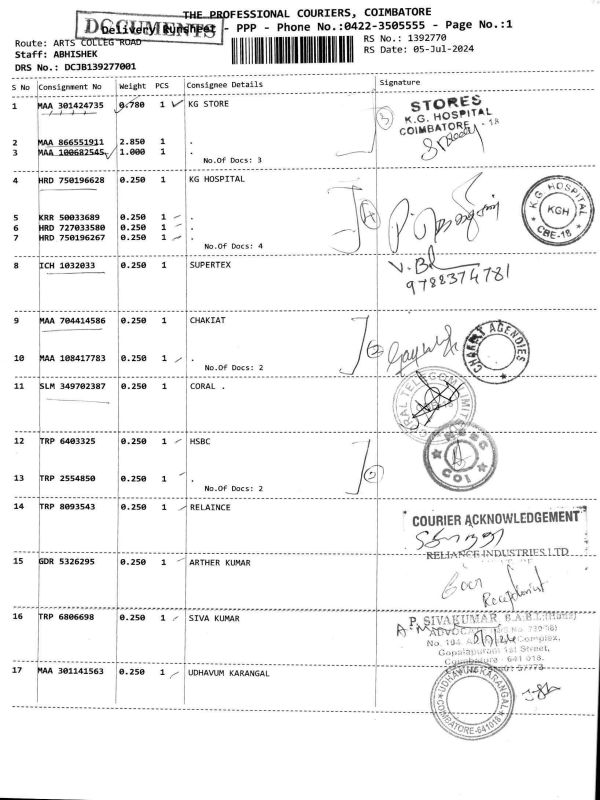 THE PROFESSIONAL COURIERS, COIMBATORE
DOCUMENTS
Delivery Runsheet - PPP - Phone No.:0422-3505555 - Page No.:1
Route: ARTS COLLEG ROAD
RS No.: 1392770
Staff: ABHISHEK
RS Date: 05-Jul-2024
DRS No.: DCJB139277001
S No Consignment No Weight PCS Consignee Details Signature
1 MAA 301424735 0.780 1 KG STORE
STORES
K.G. HOSPITAL
COIMBATORE - 18
3
2 MAA 866551911 2.850 1 .
3 MAA 100682545 1.000 1 .
No.Of Docs: 3
4 HRD 750196628 0.250 1 KG HOSPITAL
K G HOSPITAL
KGH
CBE-18
4
5 KRR 50033689 0.250 1 .
6 HRD 727033580 0.250 1 .
7 HRD 750196267 0.250 1 .
No.Of Docs: 4
8 ICH 1032033 0.250 1 SUPERTEX
9788374781
9 MAA 704414586 0.250 1 CHAKIAT
CHAKIAT AGENCIES
2
10 MAA 108417783 0.250 1 .
No.Of Docs: 2
11 SLM 349702387 0.250 1 CORAL .
12 TRP 6403325 0.250 1 HSBC
HSBC
COI
2
13 TRP 2554850 0.250 1 .
No.Of Docs: 2
14 TRP 8093543 0.250 1 RELAINCE
COURIER ACKNOWLEDGEMENT
RELIANCE INDUSTRIES LTD
15 GDR 5326295 0.250 1 ARTHER KUMAR
16 TRP 6806698 0.250 1 SIVA KUMAR
P. SIVAKUMAR B.A.B.L.(Hons)
Complex,
Gopalapuram 1st Street,
Coimbatore - 641 018.
17 MAA 301141563 0.250 1 UDHAVUM KARANGAL
UDHAVUM KARANGAL
COIMBATORE-641018